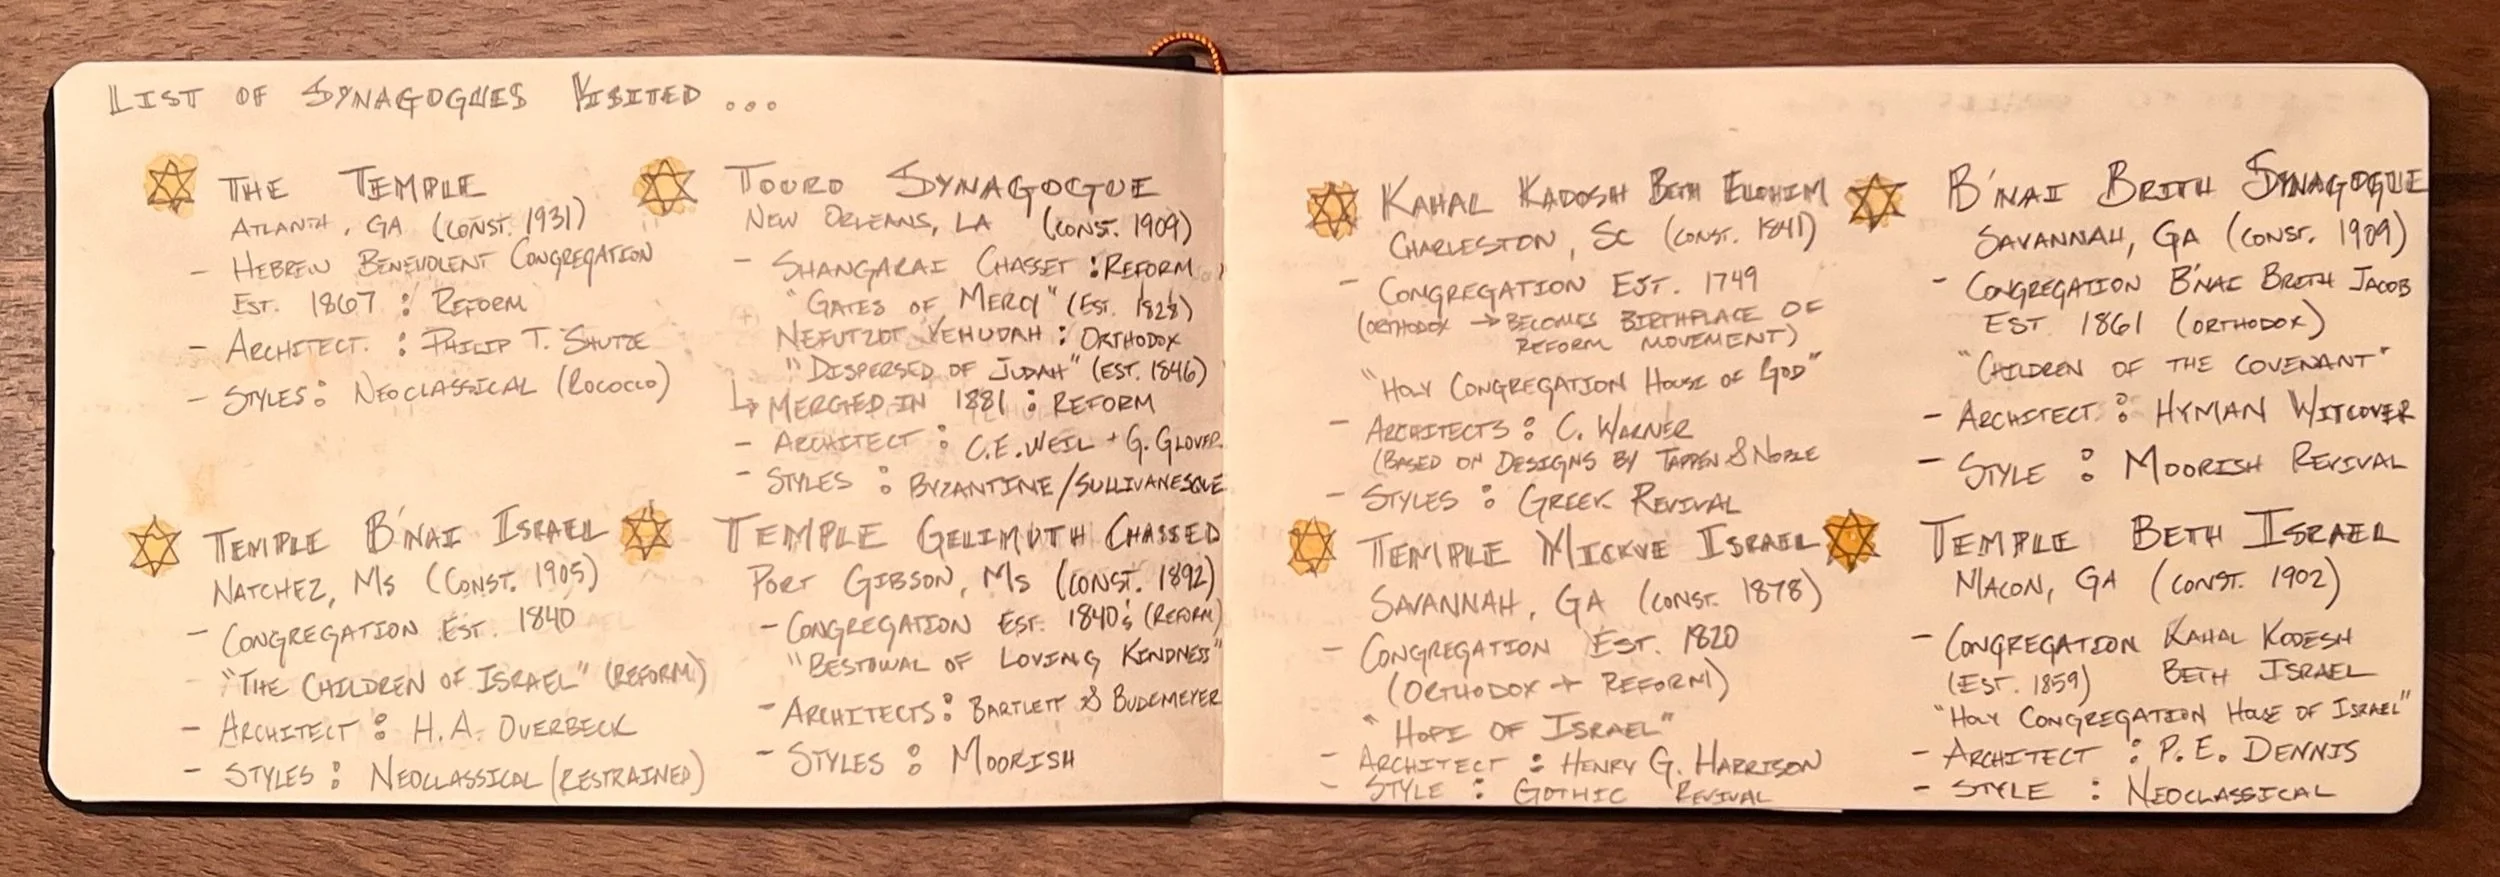 LIST OF SYNAGOGUES VISITED ...
THE TEMPLE
ATLANTA, GA (CONST. 1931)
- HEBREW BENEVOLENT CONGREGATION
EST. 1867 : REFORM
- ARCHITECT. : PHILIP T. SHUTZE
- STYLES : NEOCLASSICAL (ROCOCCO)
TOURO SYNAGOGUE
NEW ORLEANS, LA (CONST. 1909)
- SHANGARAI CHASSET : REFORM
"GATES OF MERCY" (EST. 1828)
NEFUTZOT YEHUDAH : ORTHODOX
"DISPERSED OF JUDAH" (EST. 1846)
↳ MERGED IN 1881 : REFORM
- ARCHITECT : C.E. WEIL + G. GLOVER
- STYLES : BYZANTINE/SULLIVANESQUE
TEMPLE B'NAI ISRAEL
NATCHEZ, MS (CONST. 1905)
- CONGREGATION EST. 1840
"THE CHILDREN OF ISRAEL" (REFORM)
- ARCHITECT : H.A. OVERBECK
- STYLES : NEOCLASSICAL (RESTRAINED)
TEMPLE GELIMUTH CHASSED
PORT GIBSON, MS (CONST. 1892)
- CONGREGATION EST. 1840's (REFORM)
"BESTOWAL OF LOVING KINDNESS"
- ARCHITECTS : BARTLETT & BUDEMEYER
- STYLES : MOORISH
KAHAL KADOSH BETH ELOHIM
CHARLESTON, SC (CONST. 1841)
- CONGREGATION EST. 1749
(ORTHODOX → BECOMES BIRTHPLACE OF
REFORM MOVEMENT)
"HOLY CONGREGATION HOUSE OF GOD"
- ARCHITECTS : C. WARNER
(BASED ON DESIGNS BY TAPPEN & NOBLE
- STYLES : GREEK REVIVAL
B'NAI BRITH SYNAGOGUE
SAVANNAH, GA (CONST. 1909)
- CONGREGATION B'NAI BRITH JACOB
EST 1861 (ORTHODOX)
"CHILDREN OF THE COVENANT"
- ARCHITECT : HYMAN WITCOVER
- STYLE : MOORISH REVIVAL
TEMPLE MICKVE ISRAEL
SAVANNAH, GA (CONST. 1878)
- CONGREGATION EST. 1820
(ORTHODOX + REFORM)
"HOPE OF ISRAEL"
- ARCHITECT : HENRY G. HARRISON
- STYLE : GOTHIC REVIVAL
TEMPLE BETH ISRAEL
MACON, GA (CONST. 1902)
- CONGREGATION KAHAL KODESH
(EST. 1859) BETH ISRAEL
"HOLY CONGREGATION HOUSE OF ISRAEL"
- ARCHITECT : P.E. DENNIS
- STYLE : NEOCLASSICAL